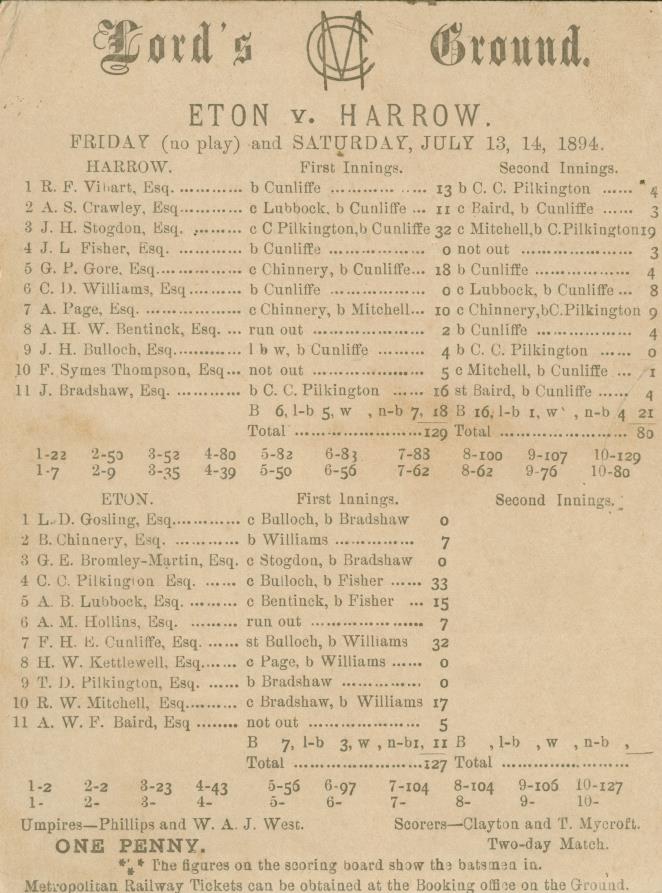 Lord's MCC Ground.
ETON v. HARROW.
FRIDAY (no play) and SATURDAY, JULY 13, 14, 1894.
HARROW. First Innings. Second Innings.
1 R. F. Vibart, Esq. ............ b Cunliffe ................ 13 b C. C. Pilkington ...... 4
2 A. S. Crawley, Esq............ c Lubbock, b Cunliffe ... 11 c Baird, b Cunliffe ...... 3
3 J. H. Stogdon, Esq. ......... c C Pilkington,b Cunliffe 32 c Mitchell,b C.Pilkington19
4 J. L Fisher, Esq. ............ b Cunliffe .................. 0 not out .................. 3
5 G. P. Gore, Esq............... c Chinnery, b Cunliffe... 18 b Cunliffe ............... 4
6 C. D. Williams, Esq ......... b Cunliffe .................. 0 c Lubbock, b Cunliffe 8
7 A. Page, Esq. ............... c Chinnery, b Mitchell... 10 c Chinnery,bC.Pilkington 9
8 A. H. W. Bentinck, Esq. ... run out ..................... 2 b Cunliffe .................. 4
9 J. H. Bulloch, Esq........... l b w, b Cunliffe ......... 4 b C. C. Pilkington ...... 0
10 F. Symes Thompson, Esq... not out ..................... 5 c Mitchell, b Cunliffe ... 1
11 J. Bradshaw, Esq. ............ b C. C. Pilkington ...... 16 st Baird, b Cunliffe ... 4
B 6, l-b 5, w , n-b 7, 18 B 16, l-b 1, w , n-b 4 21
Total ..................129 Total .................. 80
1-22 2-50 3-52 4-80 5-82 6-83 7-88 8-100 9-107 10-129
1-7 2-9 3-35 4-39 5-50 6-56 7-62 8-62 9-76 10-80
ETON. First Innings. Second Innings.
1 L. D. Gosling, Esq............ c Bulloch, b Bradshaw 0
2 B. Chinnery, Esq. ............ b Williams ............... 7
3 G. E. Bromley-Martin, Esq. c Stogdon, b Bradshaw 0
4 C. C. Pilkington Esq. ...... c Bulloch, b Fisher ...... 33
5 A. B. Lubbock, Esq. ......... c Bentinck, b Fisher ... 15
6 A. M. Hollins, Esq. ......... run out ..................... 7
7 F. H. E. Cunliffe, Esq. ...... st Bulloch, b Williams 32
8 H. W. Kettlewell, Esq....... c Page, b Williams ...... 0
9 T. D. Pilkington, Esq. ...... b Bradshaw ............... 0
10 R. W. Mitchell, Esq. ......... c Bradshaw, b Williams 17
11 A. W. F. Baird, Esq ........ not out .................. 5
B 7, l-b 3, w , n-b1, 11 B , l-b , w , n-b ,
Total ..................127 Total .....................
1-2 2-2 3-23 4-43 5-56 6-97 7-104 8-104 9-106 10-127
1- 2- 3- 4- 5- 6- 7- 8- 9- 10-
Umpires—Phillips and W. A. J. West. Scorers—Clayton and T. Mycroft.
ONE PENNY. Two-day Match.
*** The figures on the scoring board show the batsmen in.
Metropolitan Railway Tickets can be obtained at the Booking office on the Ground.